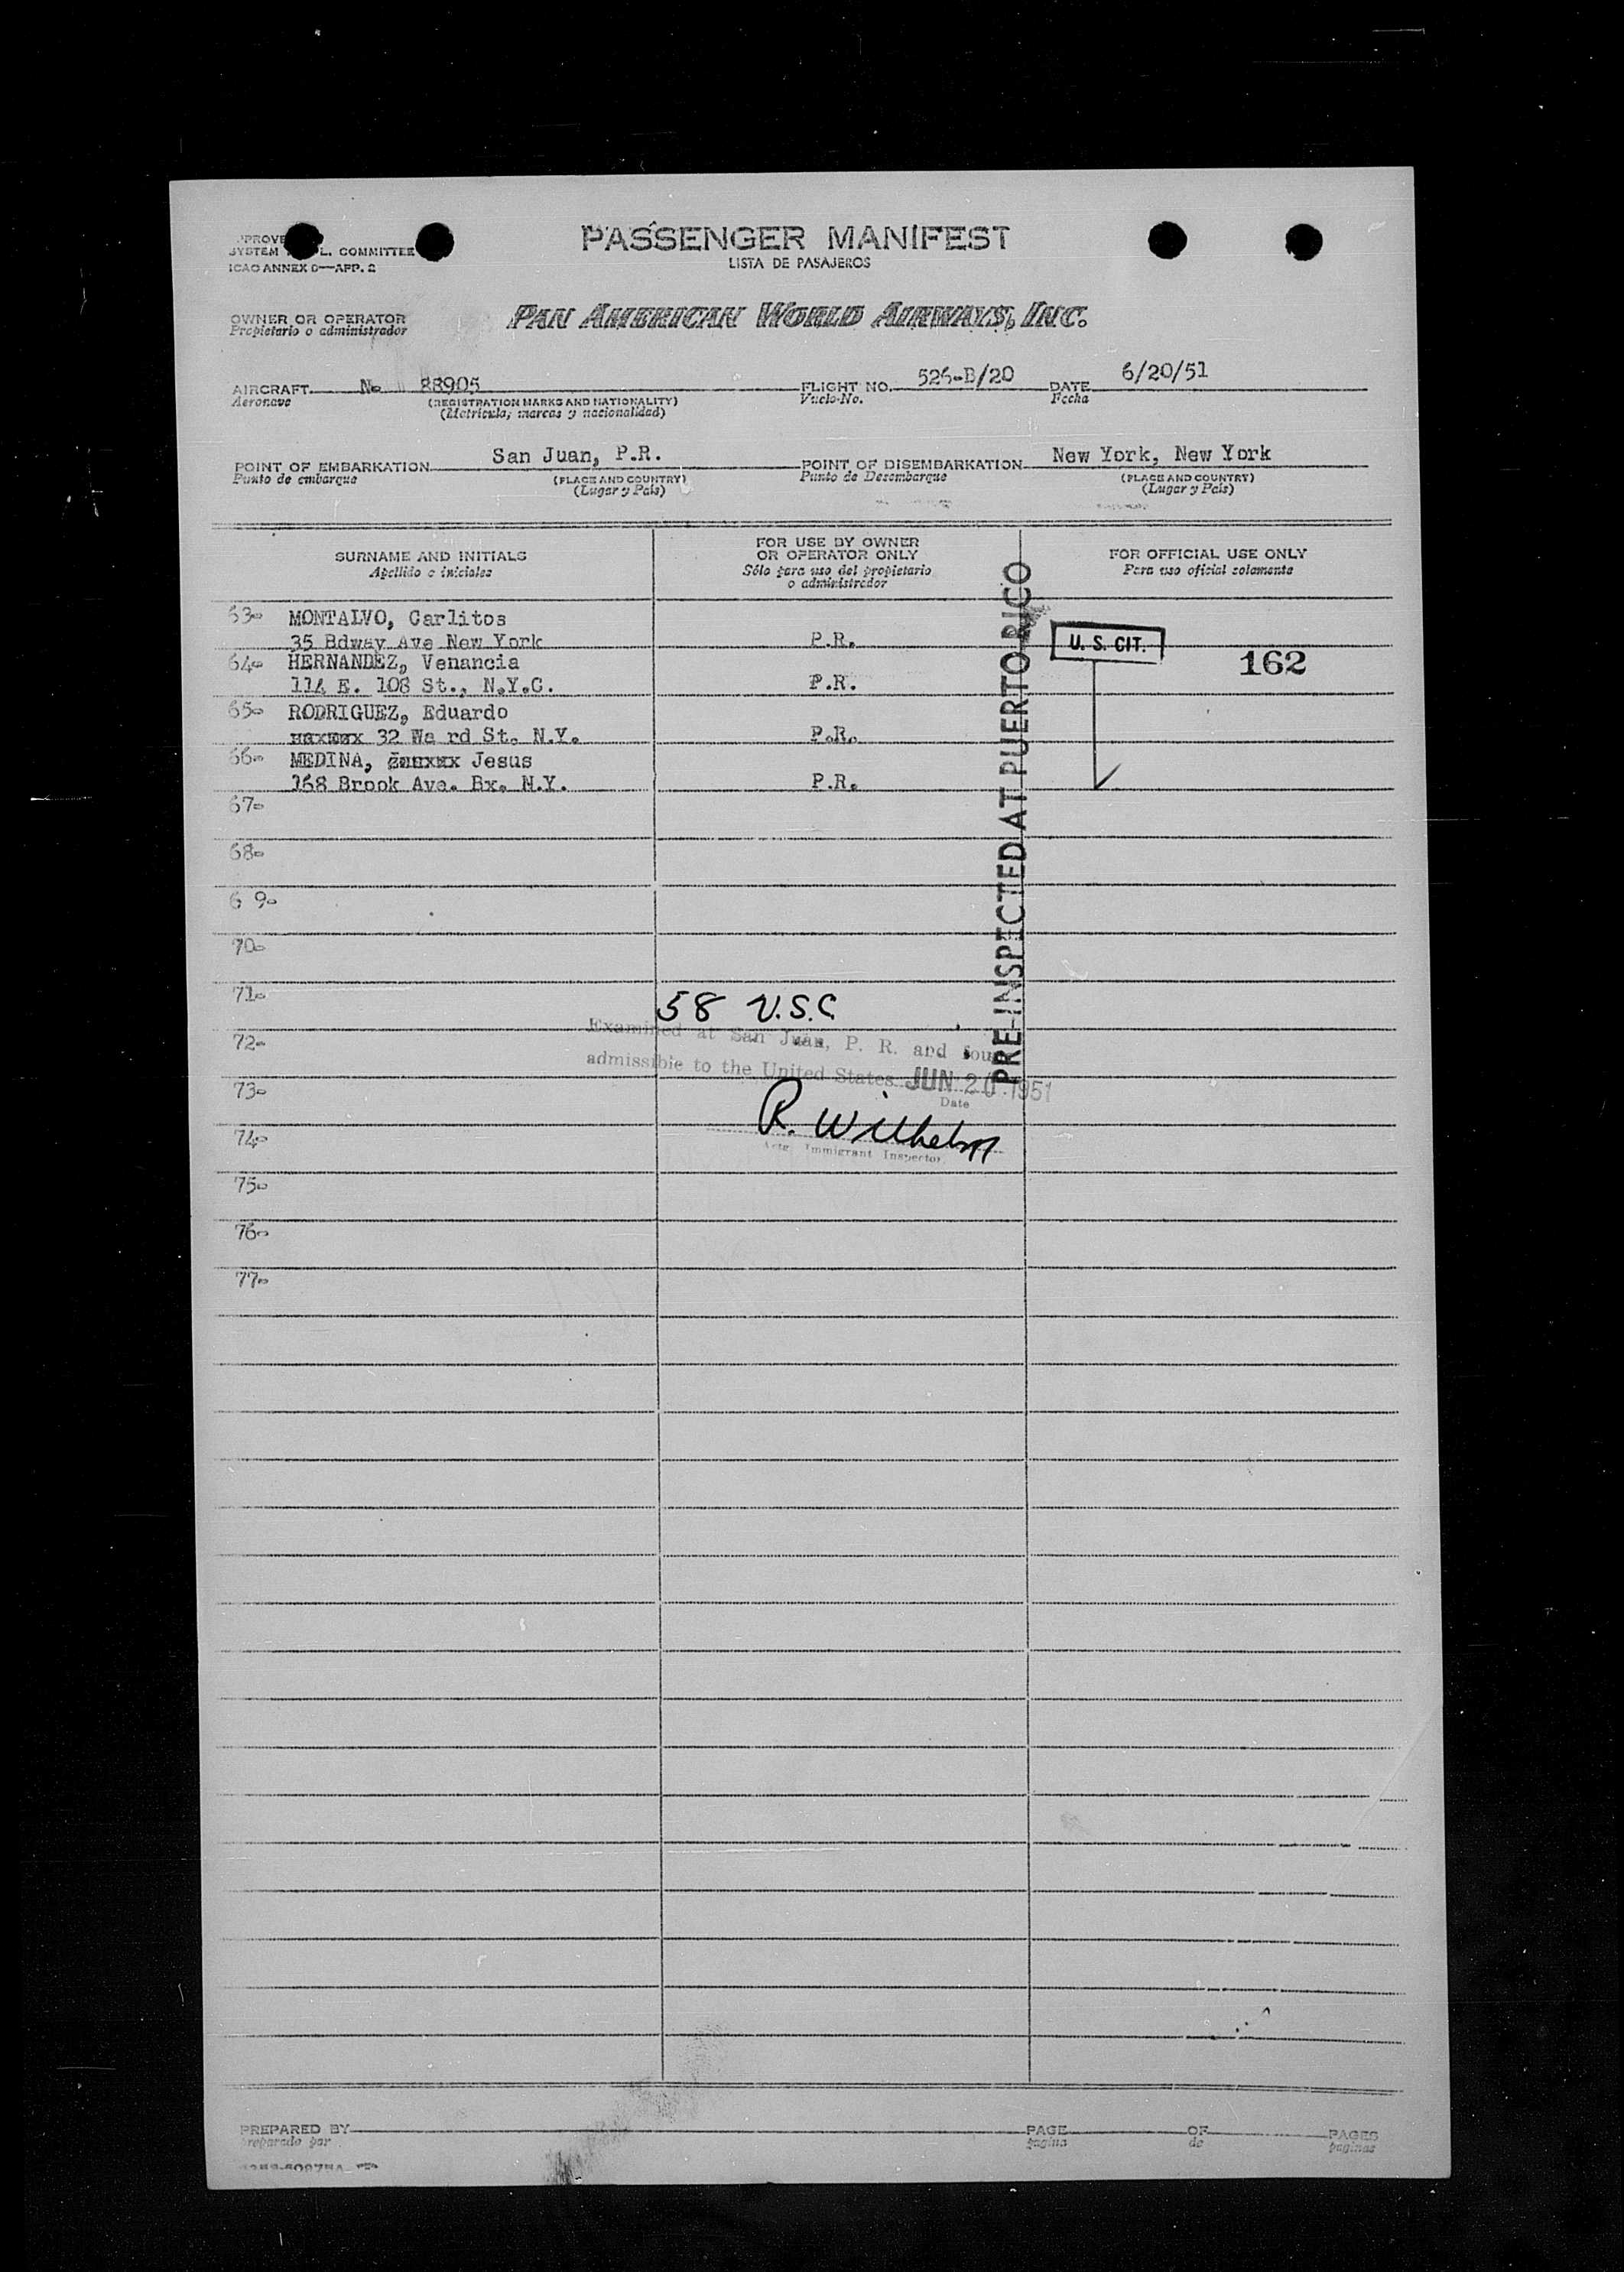 SYSTEM L. COMMITTEE
ICAO ANNEX 9—APP. 2
PASSENGER MANIFEST
LISTA DE PASAJEROS
OWNER OR OPERATOR
Propietario o administrador
PAN AMERICAN WORLD AIRWAYS, INC.
AIRCRAFT N- 88905
Aeronave
(REGISTRATION MARKS AND NATIONALITY)
(Matrícula, marcas y nacionalidad)
FLIGHT NO. 526-B/20
Vuelo No.
DATE 6/20/51
Fecha
POINT OF EMBARKATION San Juan, P.R.
Punto de embarque
(PLACE AND COUNTRY)
(Lugar y País)
POINT OF DISEMBARKATION New York, New York
Punto de Desembarque
(PLACE AND COUNTRY)
(Lugar y País)
SURNAME AND INITIALS
Apellido e iniciales
FOR USE BY OWNER
OR OPERATOR ONLY
Sólo para uso del propietario
o administrador
FOR OFFICIAL USE ONLY
Para uso oficial solamente
63- MONTALVO, Carlitos
35 Bdway Ave New York P.R.
U. S. CIT.
162
64- HERNANDEZ, Venancia
114 E. 108 St., N.Y.C. P.R.
65- RODRIGUEZ, Eduardo
32 Wa rd St. N.Y. P.R.
66- MEDINA, Jesus
168 Brook Ave. Bx. N.Y. P.R.
PRE-INSPICTED AT PUERTO RICO
67-
68-
6 9-
70-
71-
58 U.S.C
72-
Examined at San Juan, P. R. and
admissible to the United States JUN 20 1951
Date
73-
R. Wilhelm
74-
Immigrant Inspector
75-
76-
77-
PREPARED BY
preparado por
PAGE OF PAGES
página de páginas